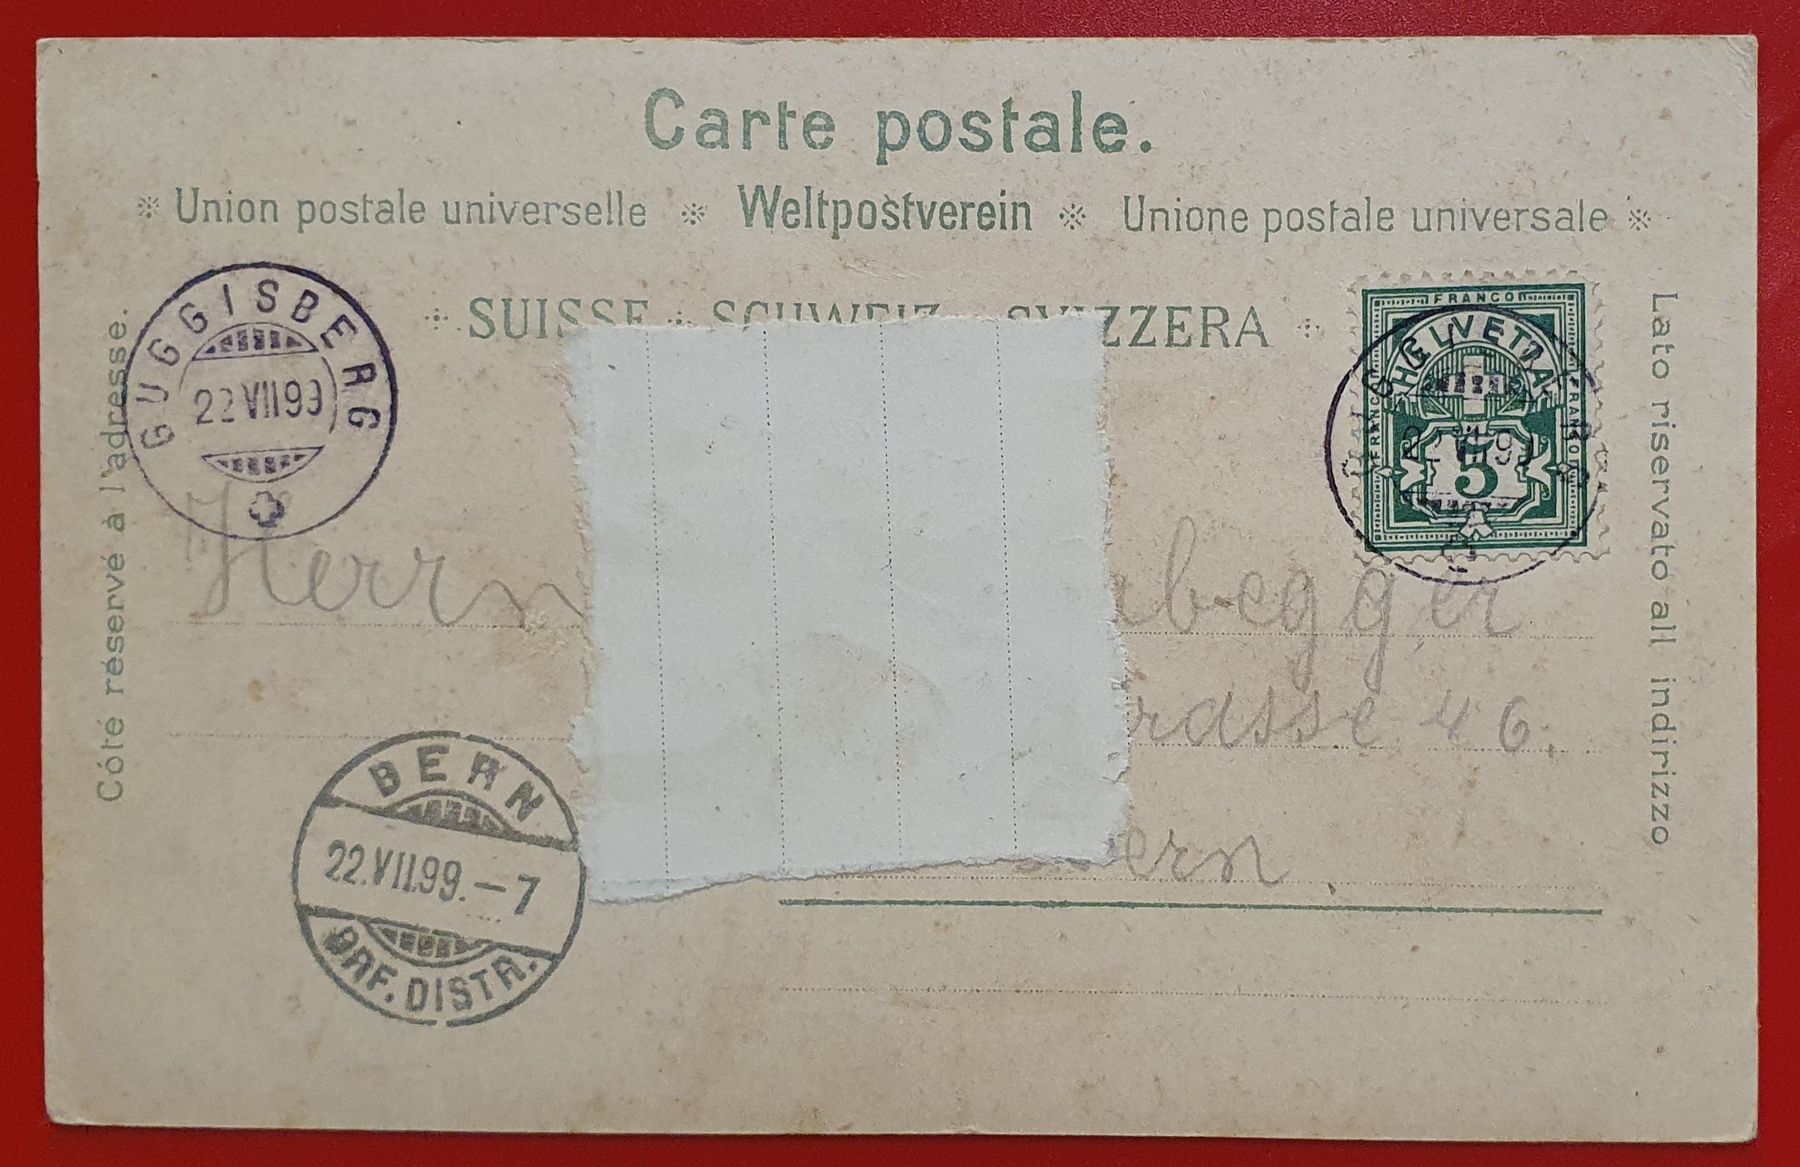 Carte postale.
Union postale universelle Weltpostverein Unione postale universale
SUISSE SCHWEIZ SVIZZERA
Côté réservé à l'adresse.
GUGGISBERG
22 VII 99
FRANCO
HELVETIA
FRANCO
FRANCO
5
Lato riservato all indirizzo
Herrn
rasse 46.
ern
BERN
22.VII.99.-7
BRF. DISTR.